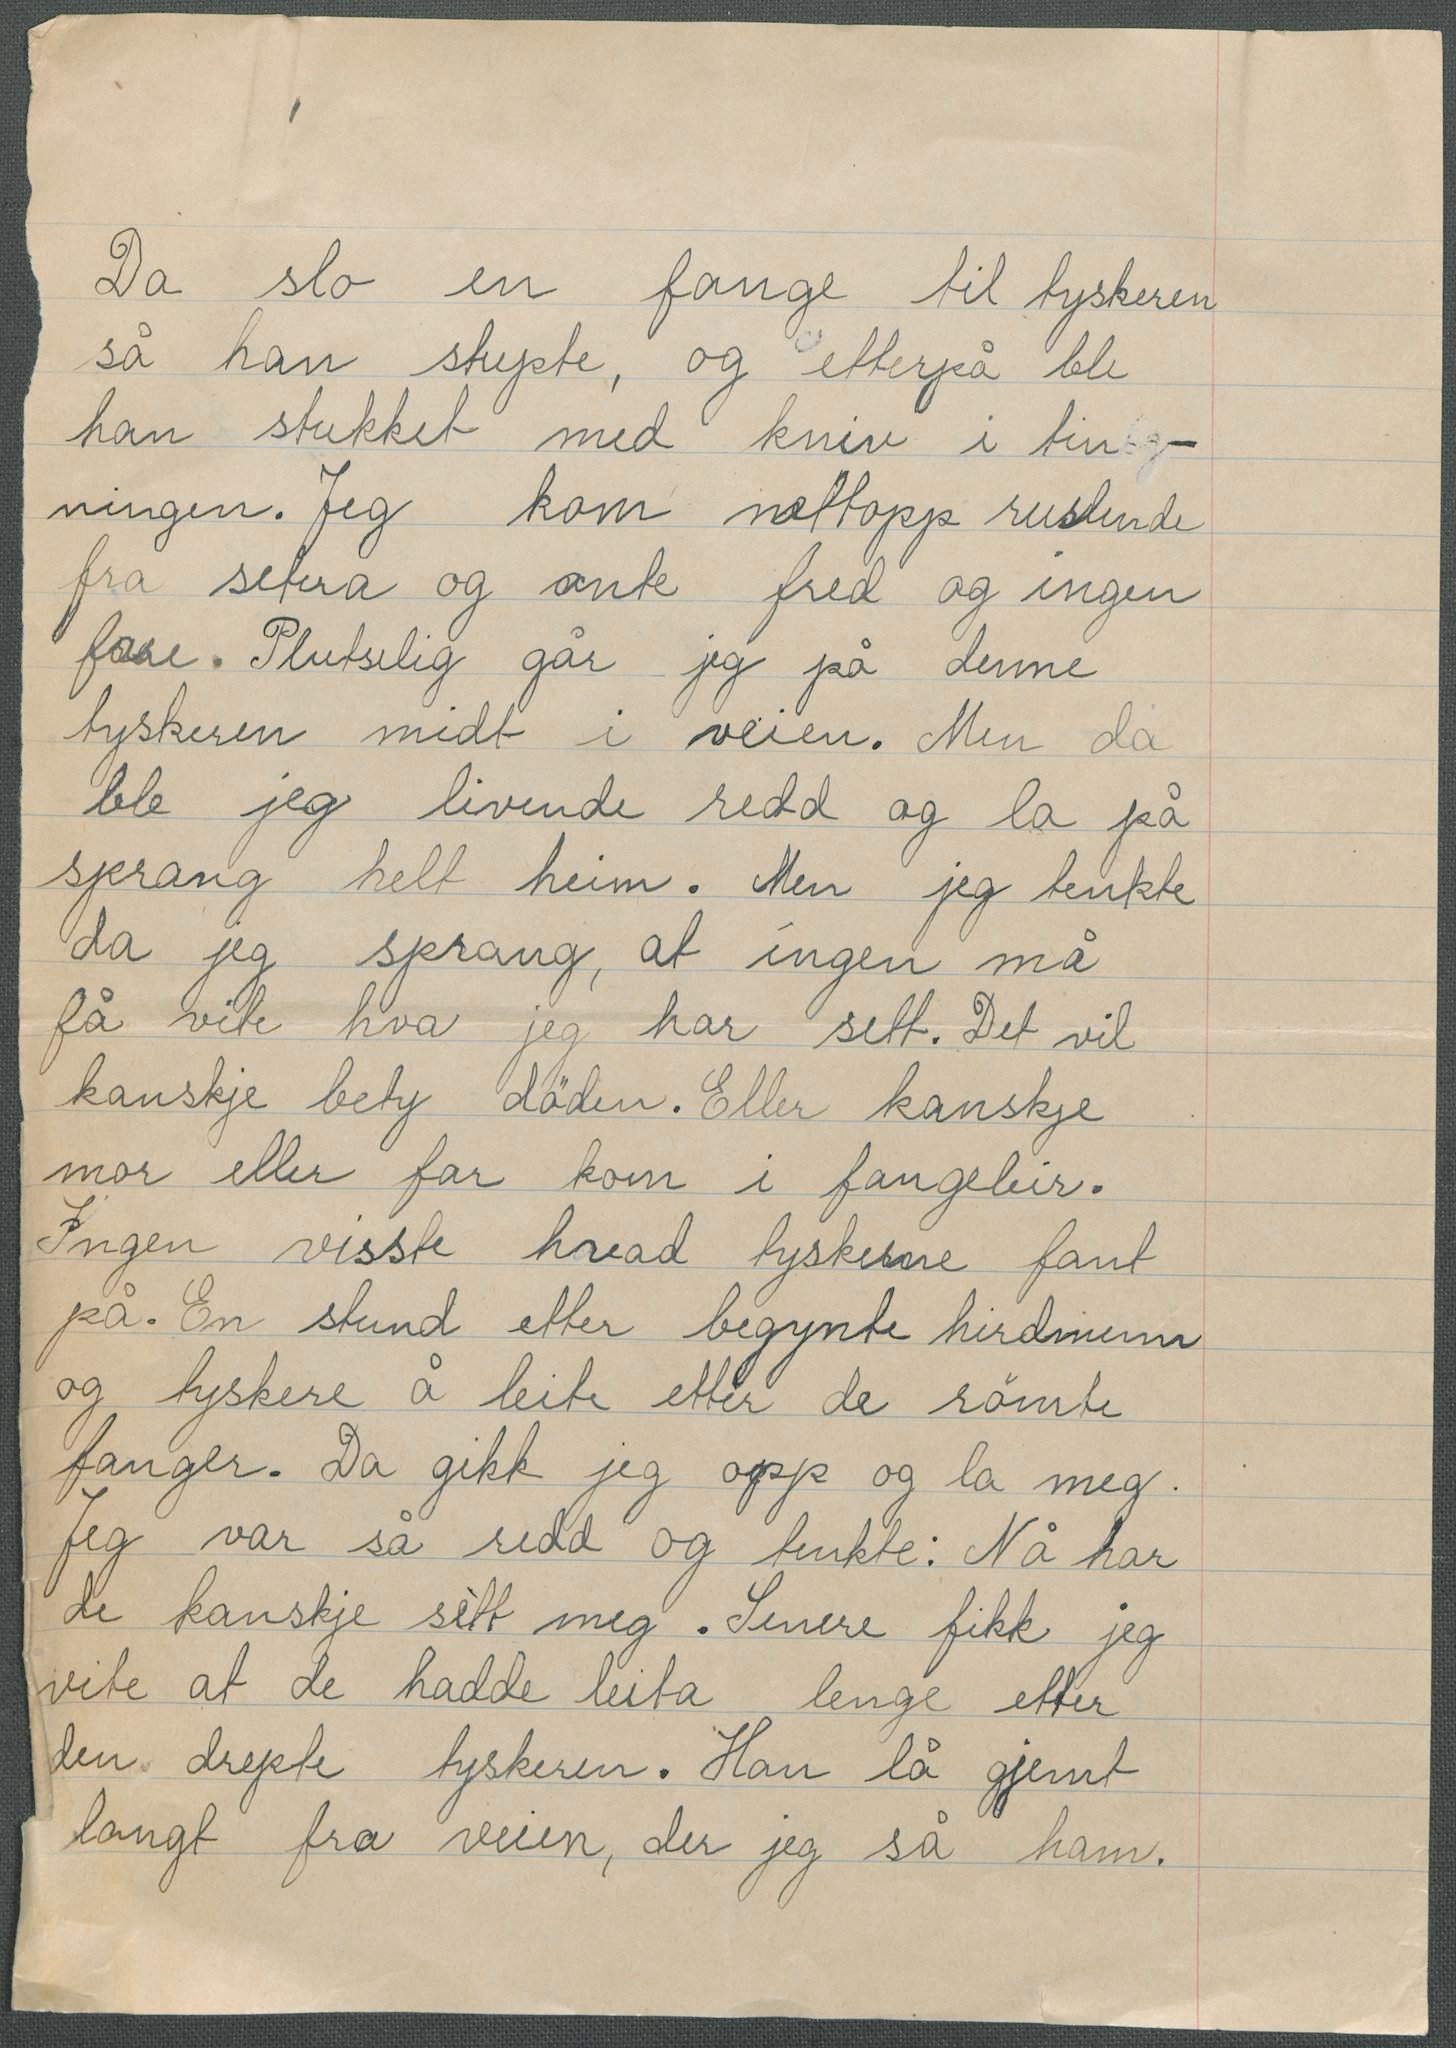 Da slo en fange til tyskeren
så han stupte, og etterpå ble
han stukket med kniv i tin-
ningen. Jeg kom nettopp ruslende
fra setra og ante fred og ingen
fare. Plutselig går jeg på denne
tyskeren midt i veien. Men da
ble jeg livende redd og la på
sprang helt heim. Men jeg tenkte
da jeg sprang, at ingen må
få vite hva jeg har sett. Det vil
kanskje bety döden. Eller kanskje
mor eller far kom i fangeleir.
Ingen visste hvad tyskerne fant
på. En stund etter begynte hirdmenn
og tyskere å leite etter de römte
fanger. Da gikk jeg opp og la meg.
Jeg var så redd og tenkte: Nå har
de kanskje sètt meg. Senere fikk jeg
vite at de hadde leita lenge etter
den drepte tyskeren. Han lå gjemt
langt fra veien, der jeg så ham.